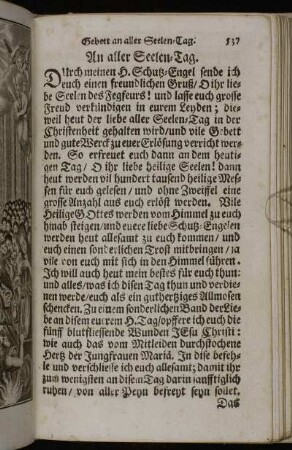 Gebett an aller Seelen-Tag. 537
An aller Seelen-Tag.
Durch meinen H. Schutz-Engel sende ich
euch einen freundlichen Gruß/ O ihr lie-
be Seelen des Fegfeurs! und lasse euch grosse
Freud verkündigen in eurem Leyden; die-
weil heut der liebe aller Seelen-Tag in der
Christenheit gehalten wird/und vile Gebett
und gute Werck zu euer Erlösung verricht wer-
den. So erfreuet euch dann an dem heuti-
gen Tag/ O ihr liebe heilige Seelen! dann
heut werden vil hundert tausend heilige Mes-
sen für euch gelesen/ und ohne Zweiffel eine
grosse Anzahl aus euch erlöst werden. Vile
Heilige Gottes werden vom Himmel zu euch
hinab steigen/und euere liebe Schutz-Engelen
werden heut allesamt zu euch kommen/ und
euch einen sonderlichen Trost mitbringen/ ja
vile von euch mit sich in den Himmel führen.
Ich will auch heut mein bestes für euch thun:
und alles/was ich disen Tag thun und verdie-
nen werde/euch als ein guthertziges Allmosen
schencken. Zu einem sonderlichen Band der Lie-
be an disem eurem H. Tag/opffere ich euch die
fünff blutfliessende Wunden JEsu Christi:
wie auch das vom Mitleiden durchstochene
Hertz der Jungfrauen Mariä. In dise befeh-
le und verschliesse ich euch allesamt; damit ihr
zum wenigsten an disem Tag darin sanfftiglich
ruhen/ von aller Peyn befreyt seyn sollet.
Das